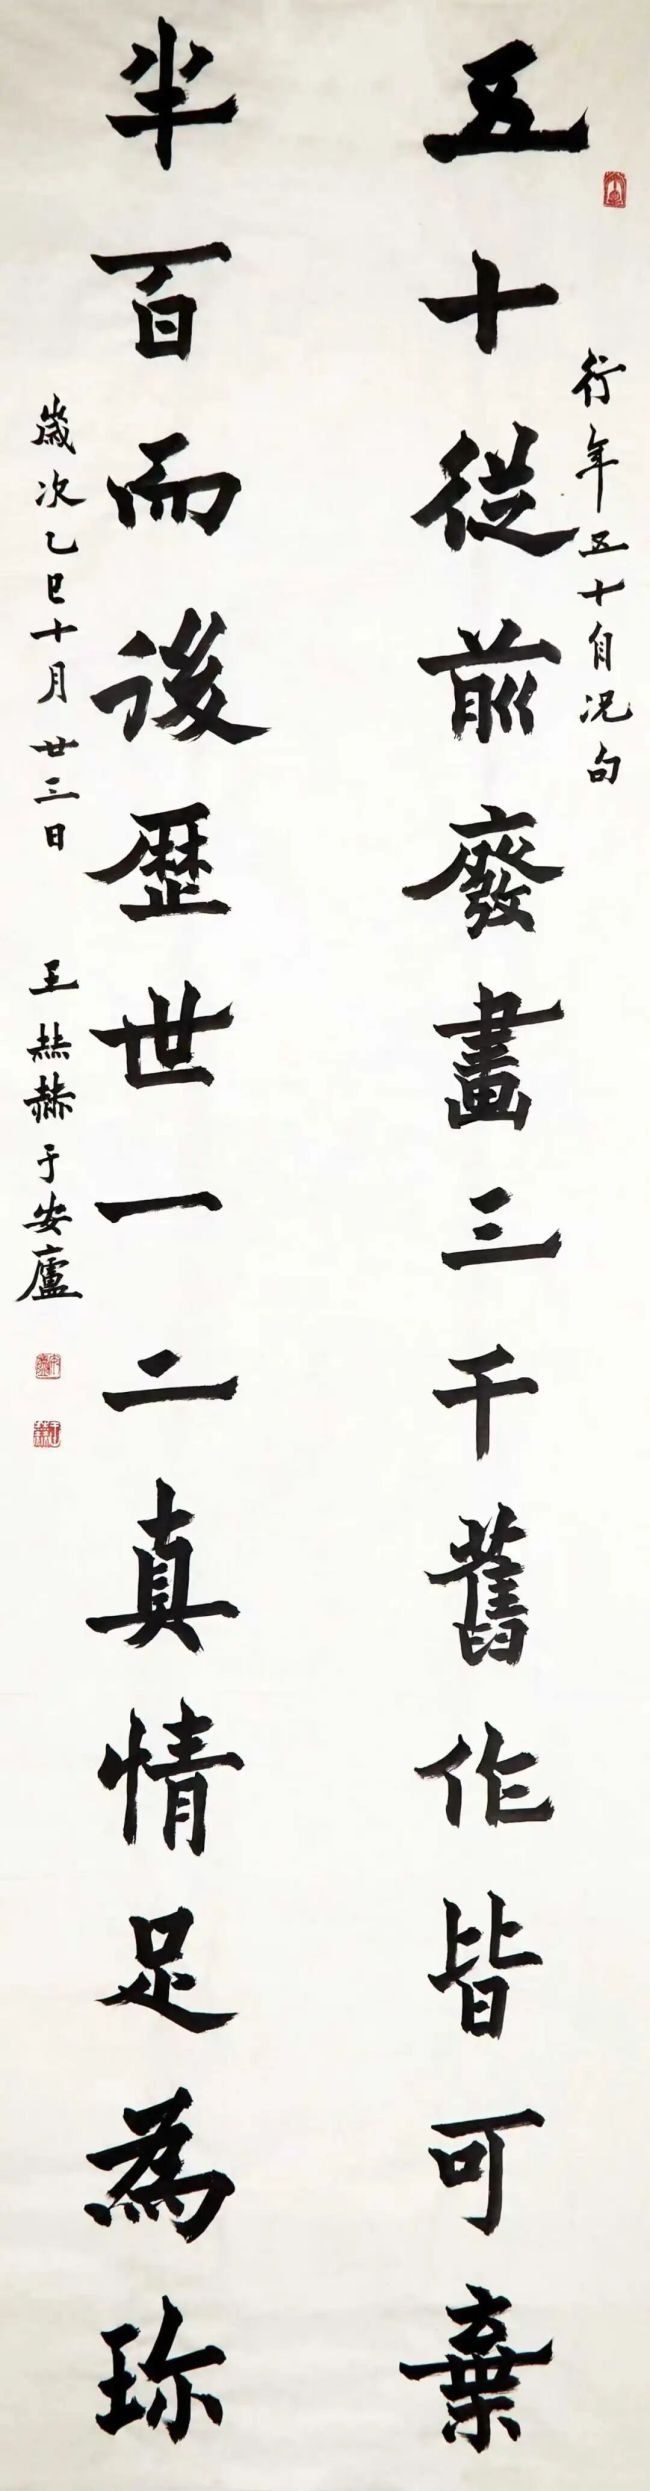 行年五十自况句
五十從前廢畫三千舊作皆可棄
半百而後歴世一二真情足為珍
歲次乙巳十月廿三日 王赫赫于安廬